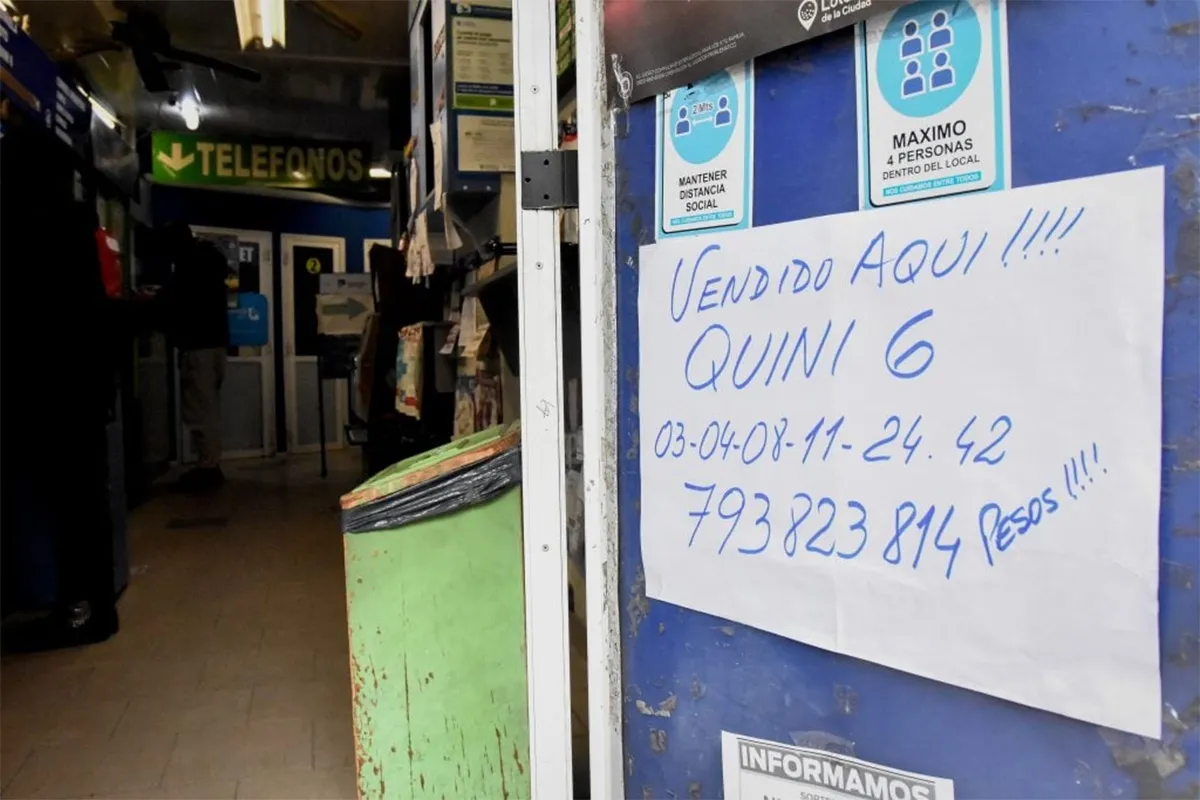 TELEFONOS
1
2
de la Ciudad
2 Mts
MANTENER
DISTANCIA
SOCIAL
NOS CUIDAMOS ENTRE TODOS
MAXIMO
4 PERSONAS
DENTRO DEL LOCAL
NOS CUIDAMOS ENTRE TODOS
VENDIDO AQUI !!!!
QUINI 6
03-04-08-11-24.42
793823814 PESOS !!!!
INFORMAMOS